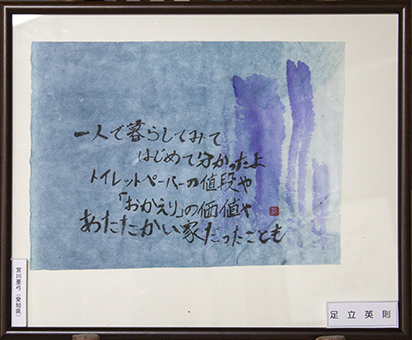 一人で暮らしてみて
はじめて分かったよ
トイレットペーパーの値段や
「おかえり」の価値や
あたたかい家だったことも
足立英則